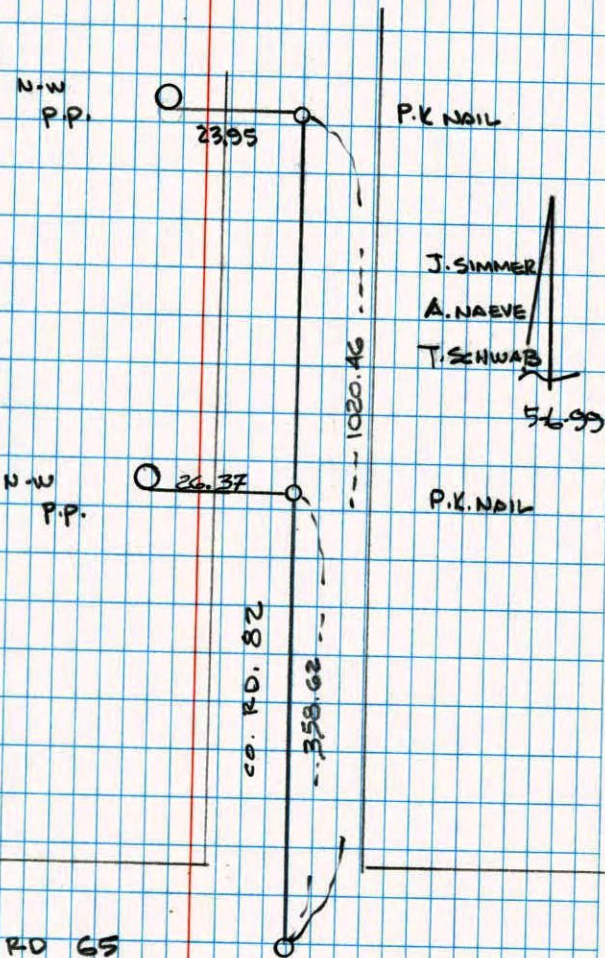 N-W
P.P.
23.95
P.K NAIL
J. SIMMER
A. NAEVE
T. SCHWAB
5-6-99
1020.46
N-W
P.P.
26.37
P.K. NAIL
CO. RD. 82
358.62
RD 65